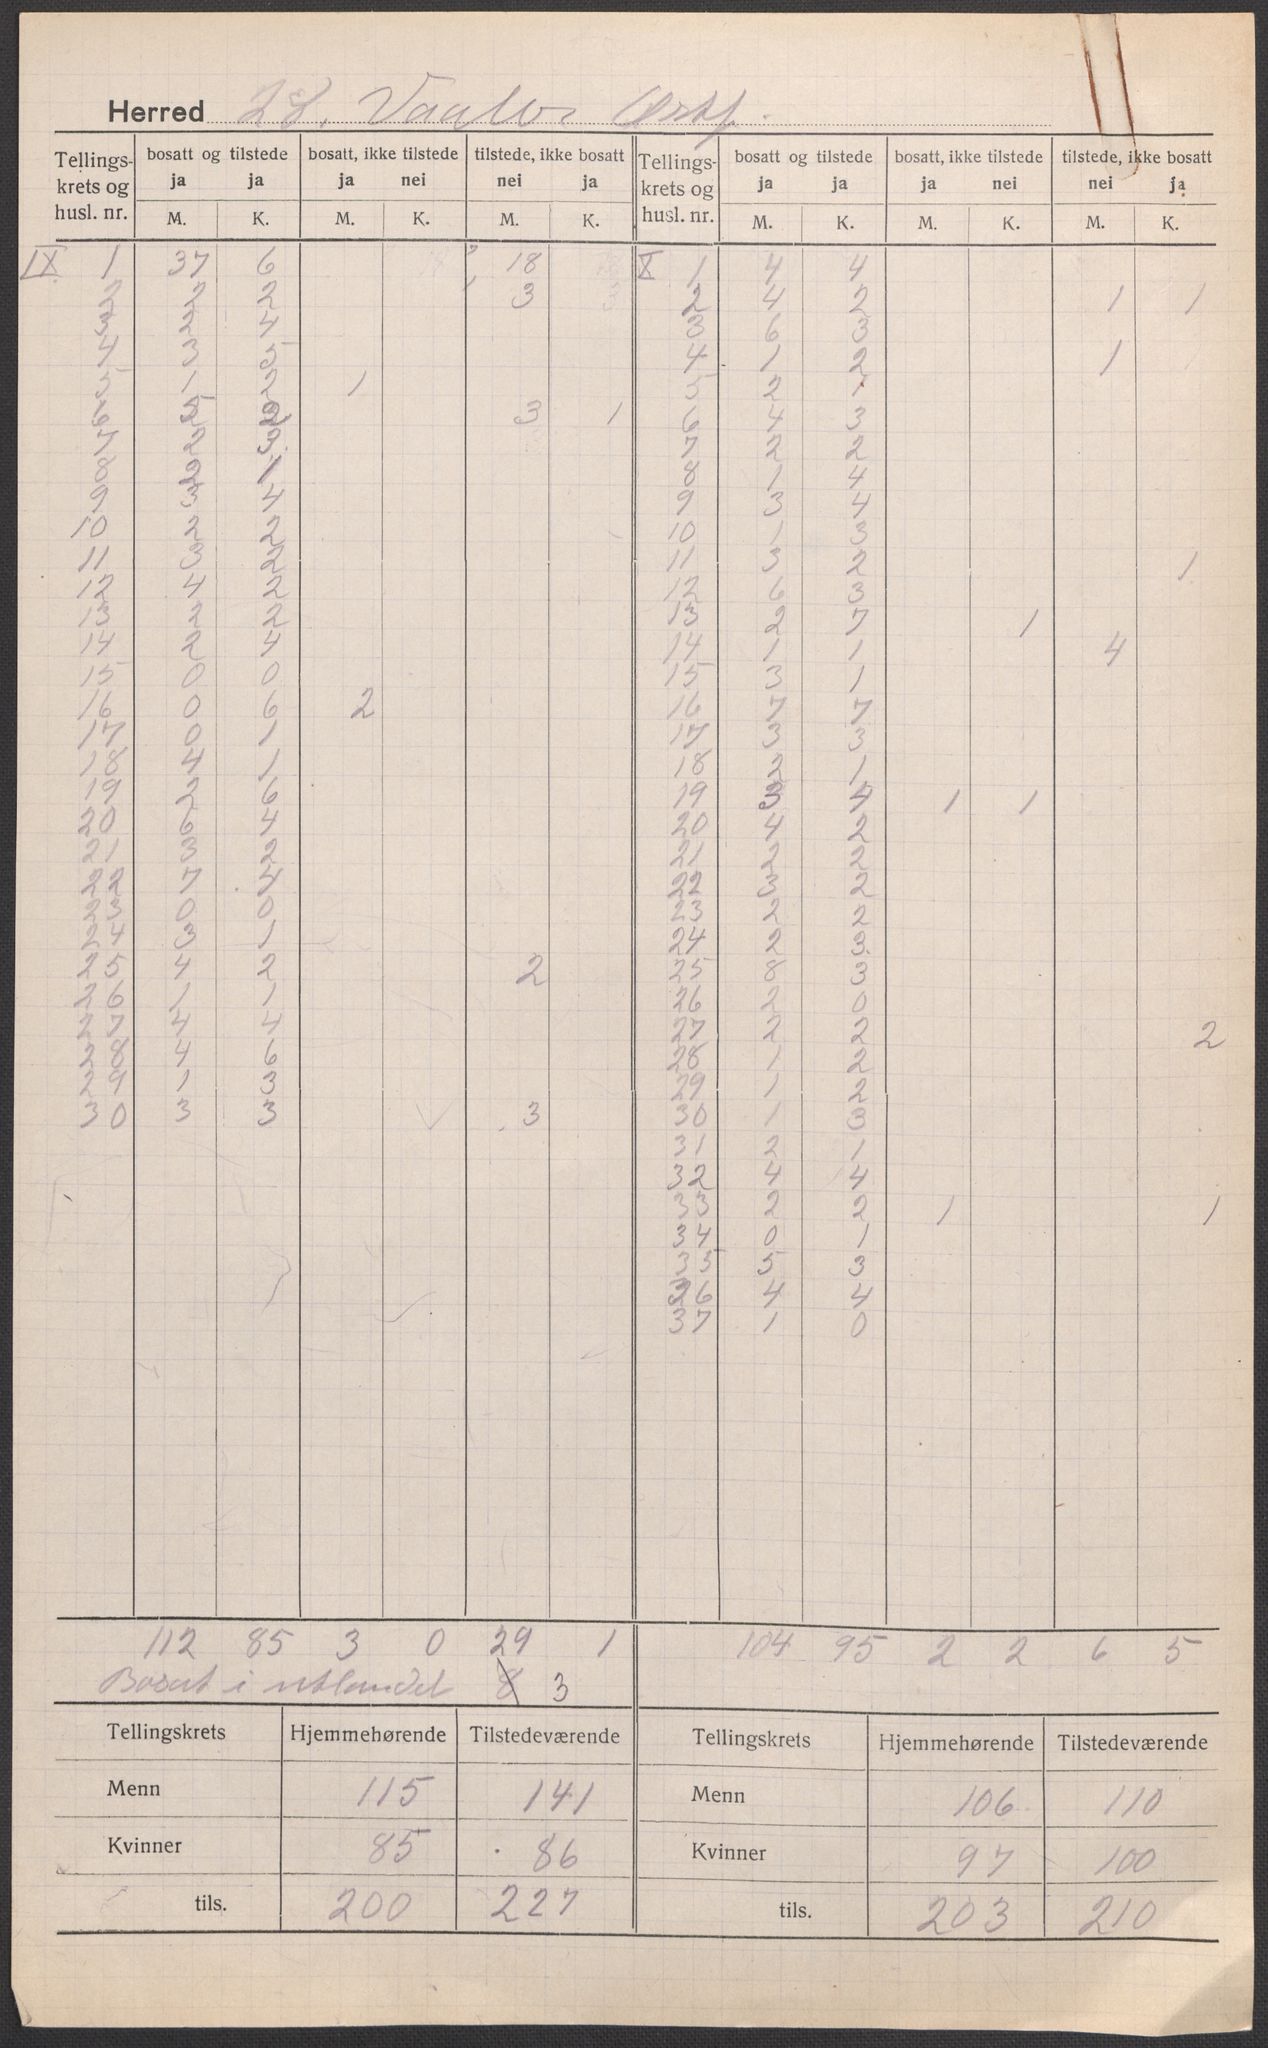 Herred 28. Vaaler Østf.
Tellingskrets og husl. nr. | bosatt og tilstede ja M. | ja K. | bosatt, ikke tilstede ja M. | nei K. | tilstede, ikke bosatt nei M. | ja K. | Tellingskrets og husl. nr. | bosatt og tilstede ja M. | ja K. | bosatt, ikke tilstede ja M. | nei K. | tilstede, ikke bosatt nei M. | ja K.
IX 1 | 37 | 6 | | | 18 | | X 1 | 4 | 4 | | | |
2 | 2 | 2 | | | 3 | | 2 | 4 | 2 | | | 1 | 1
3 | 2 | 4 | | | | | 3 | 6 | 3 | | | |
4 | 3 | 5 | | | | | 4 | 1 | 2 | | | 1 |
5 | 1 | 2 | 1 | | | | 5 | 2 | 1 | | | |
6 | 5 | 2 | | | 3 | 1 | 6 | 4 | 3 | | | |
7 | 2 | 3 | | | | | 7 | 2 | 2 | | | |
8 | 2 | 1 | | | | | 8 | 1 | 4 | | | |
9 | 3 | 4 | | | | | 9 | 3 | 4 | | | |
10 | 2 | 2 | | | | | 10 | 1 | 3 | | | |
11 | 3 | 2 | | | | | 11 | 3 | 2 | | | | 1
12 | 4 | 2 | | | | | 12 | 6 | 3 | | | |
13 | 2 | 2 | | | | | 13 | 2 | 7 | | 1 | |
14 | 2 | 4 | | | | | 14 | 1 | 1 | | | 4 |
15 | 0 | 0 | | | | | 15 | 3 | 1 | | | |
16 | 0 | 6 | 2 | | | | 16 | 7 | 7 | | | |
17 | 0 | 1 | | | | | 17 | 3 | 3 | | | |
18 | 4 | 1 | | | | | 18 | 2 | 1 | | | |
19 | 2 | 6 | | | | | 19 | 3 | 4 | 1 | 1 | |
20 | 6 | 4 | | | | | 20 | 4 | 2 | | | |
21 | 3 | 2 | | | | | 21 | 2 | 2 | | | |
22 | 7 | 4 | | | | | 22 | 3 | 2 | | | |
23 | 0 | 0 | | | | | 23 | 2 | 2 | | | |
24 | 3 | 1 | | | | | 24 | 2 | 3 | | | |
25 | 4 | 2 | | | 2 | | 25 | 8 | 3 | | | |
26 | 1 | 1 | | | | | 26 | 2 | 0 | | | |
27 | 4 | 4 | | | | | 27 | 2 | 2 | | | | 2
28 | 4 | 6 | | | | | 28 | 1 | 2 | | | |
29 | 1 | 3 | | | | | 29 | 1 | 2 | | | |
30 | 3 | 3 | | | 3 | | 30 | 1 | 3 | | | |
31 | 2 | 1
32 | 4 | 4
33 | 2 | 2 | 1 | | | 1
34 | 0 | 1
35 | 5 | 3
36 | 4 | 4
37 | 1 | 0
112 | 85 | 3 | 0 | 29 | 1 | | 104 | 95 | 2 | 2 | 6 | 5
Bosat i utlandet 8 3
Tellingskrets | Hjemmehørende | Tilstedeværende | Tellingskrets | Hjemmehørende | Tilstedeværende
Menn | 115 | 141 | Menn | 106 | 110
Kvinner | 85 | 86 | Kvinner | 97 | 100
tils. | 200 | 227 | tils. | 203 | 210